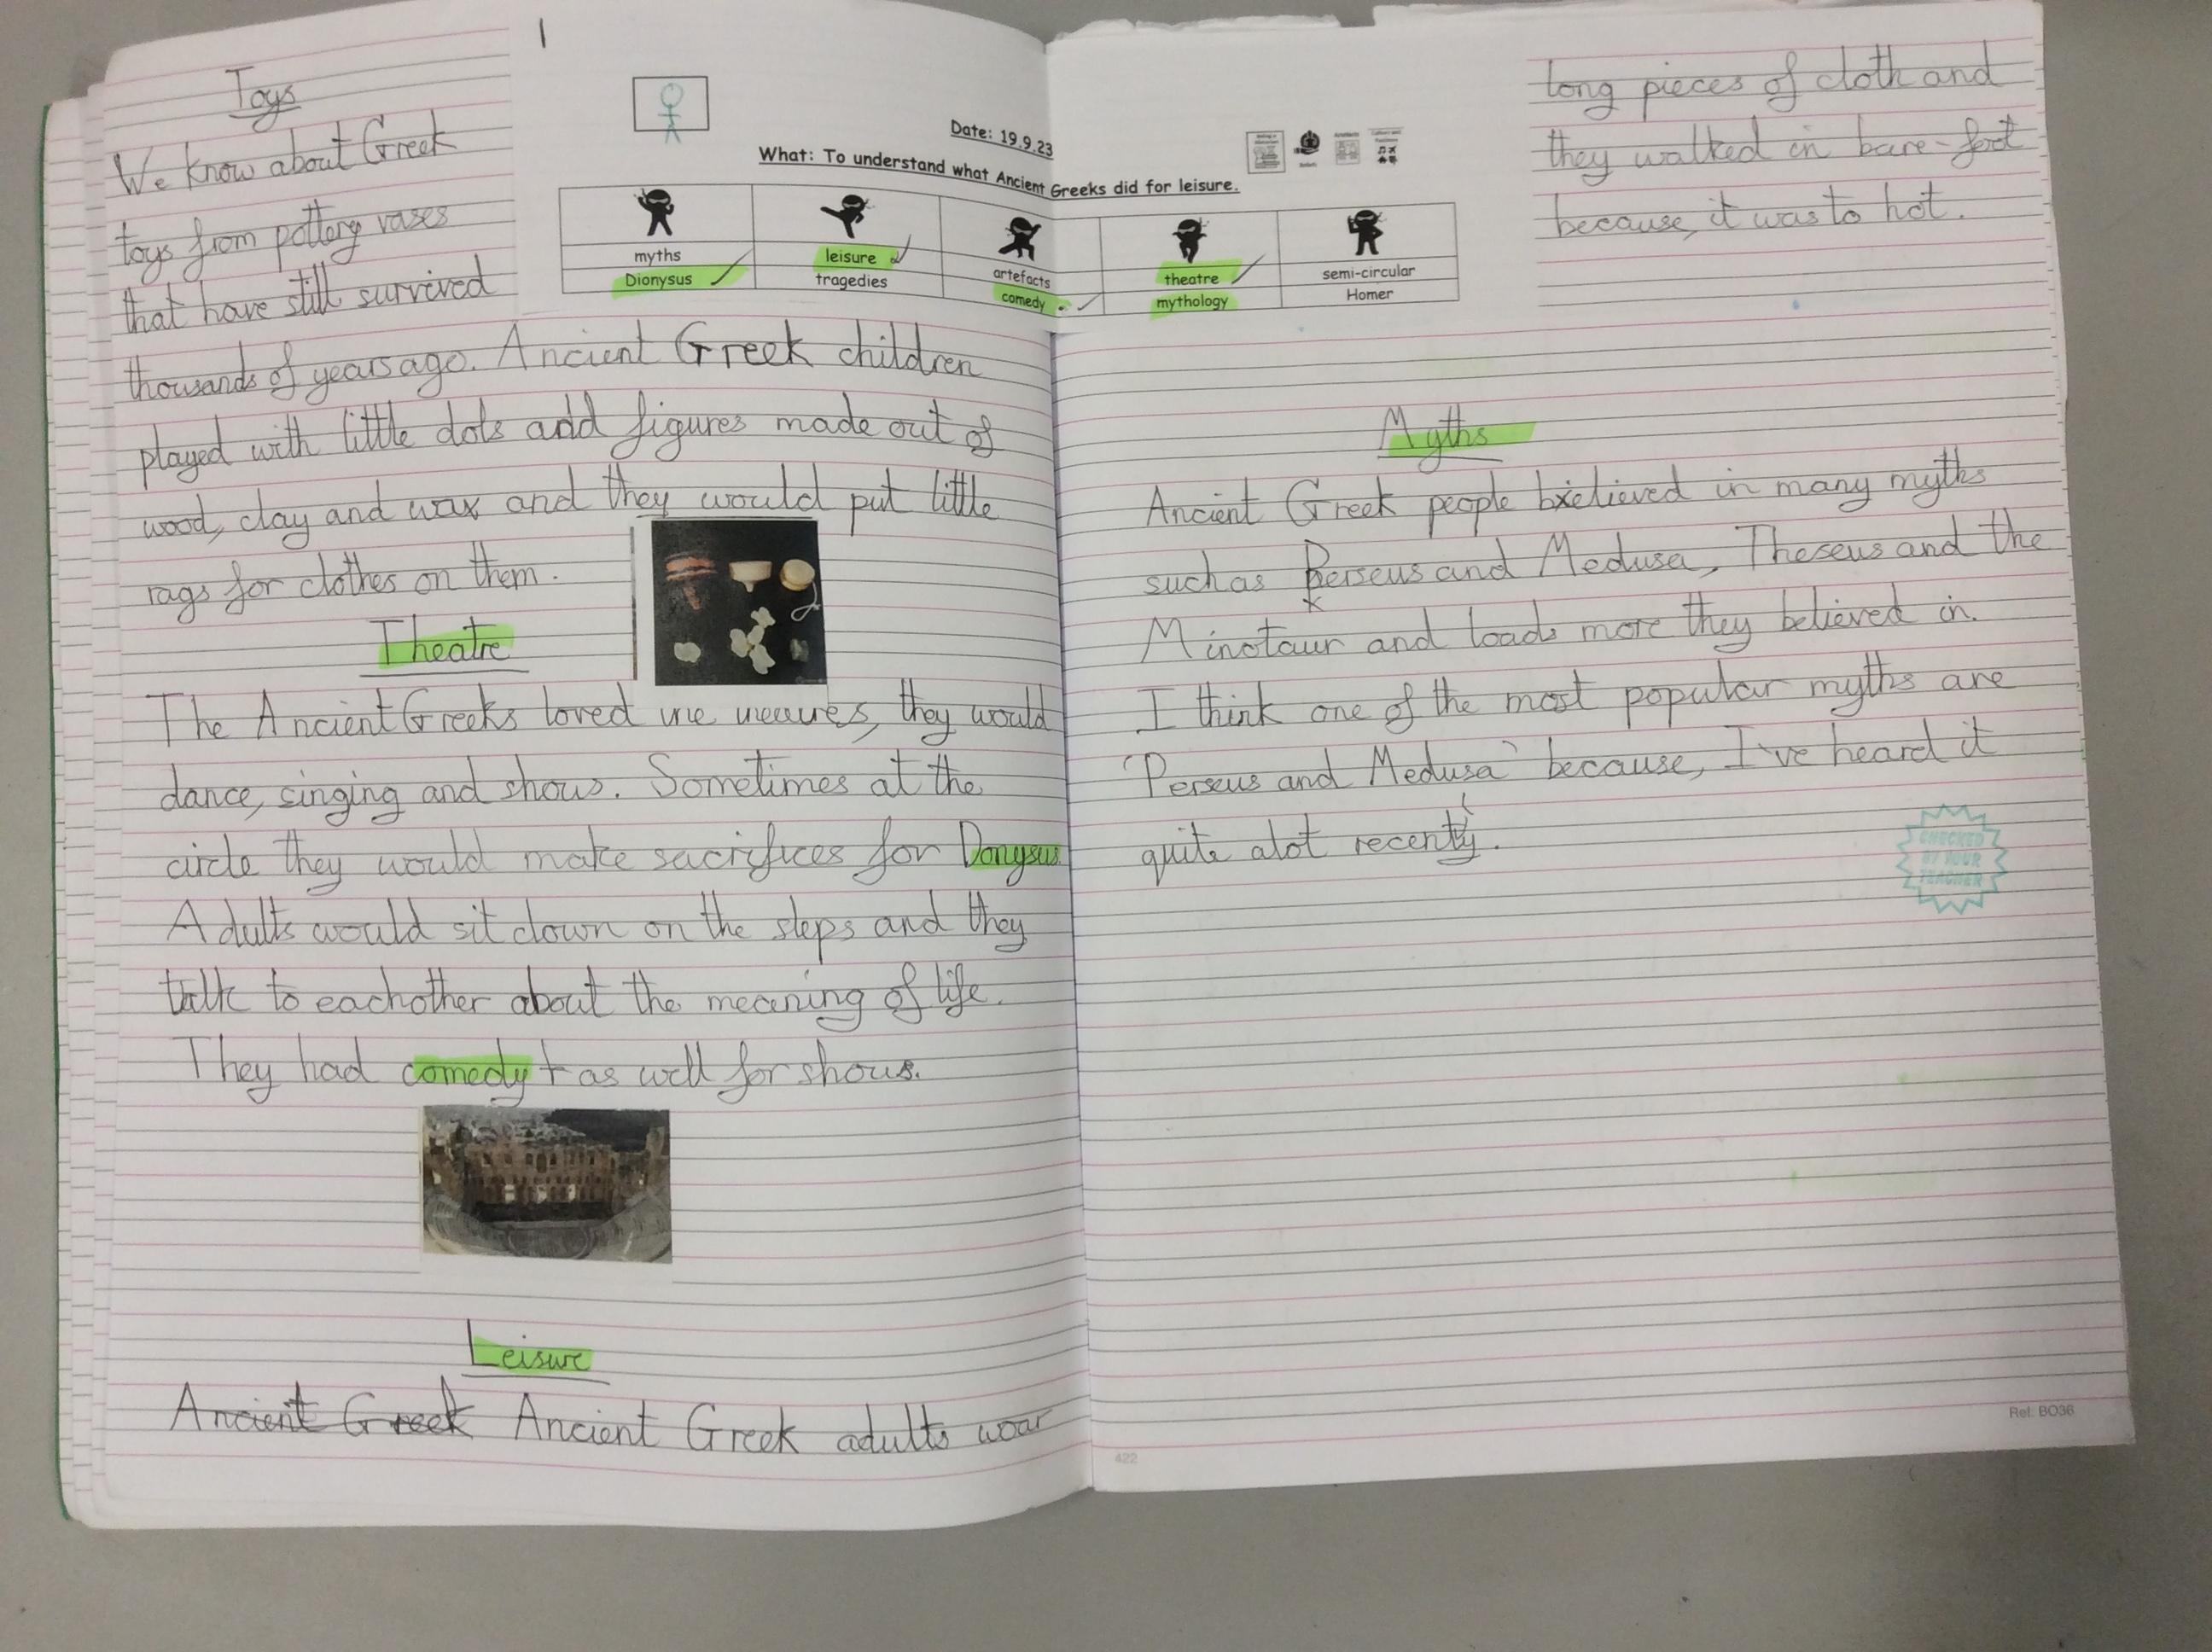 Date: 19.9.23
What: To understand what Ancient Greeks did for leisure.
myths
leisure
artefacts
theatre
semi-circular
Dionysus
tragedies
comedy
mythology
Homer
Toys
We know about Greek
toys from pottery vases
that have still survived
thousands of years ago. Ancient Greek children
played with little dols and figures made out of
wood, clay and wax and they would put little
rags for clothes on them.
Theatre
The Ancient Greeks loved they would
dance, singing and shows. Sometimes at the
circle they would make sacrifices for Donysus
Adults would sit down on the steps and they
talk to eachother about the meaning of life.
They had comedy as well for shows.
Leisure
Ancient Greek Ancient Greek adults woar
long pieces of cloth and
they walked in bare-foot
because, it was to hot.
Myths
Ancient Greek people believed in many myths
such as Perseus and Medusa, Theseus and the
Minotaur and loads more they believed in.
I think one of the most popular myths are
'Perseus and Medusa' because, I've heard it
quite alot recently.
CHECKED
BY YOUR
TEACHER
422
Ref: BO36